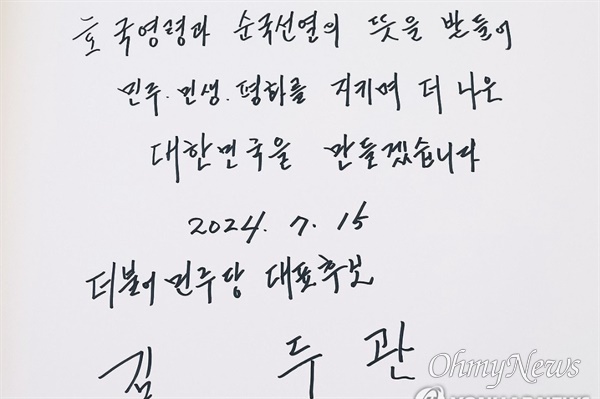 호국영령과 순국선열의 뜻을 받들어
민주·민생·평화를 지키며 더 나은
대한민국을 만들겠습니다
2024. 7. 15
더불어민주당 대표후보
김 두관
OhmyNews